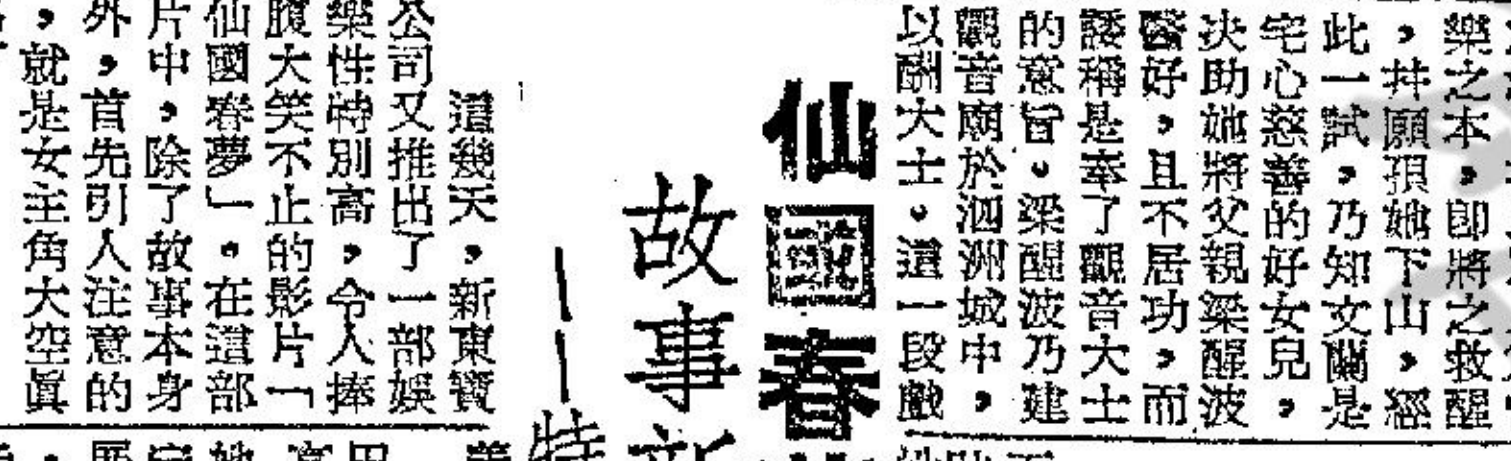 樂之本，卽將之救醒
，幷願損她下山，經
此一試，乃知文蘭是
宅心慈善的好女兒，
决助她將父親梁醒波
醫好，且不居功，而
諉稱是奉了觀音大士
的意旨。梁醒波乃建
觀音廟於泗洲城中，
以酬大士。這一段戲
仙國春
故事新
——特
這幾天，新東寶
公司又推出了一部娛
樂性特別高，令人捧
腹大笑不止的影片「
仙國春夢」。在這部
片中，除了故事本身
外，首先引人注意的
，就是女主角大空眞